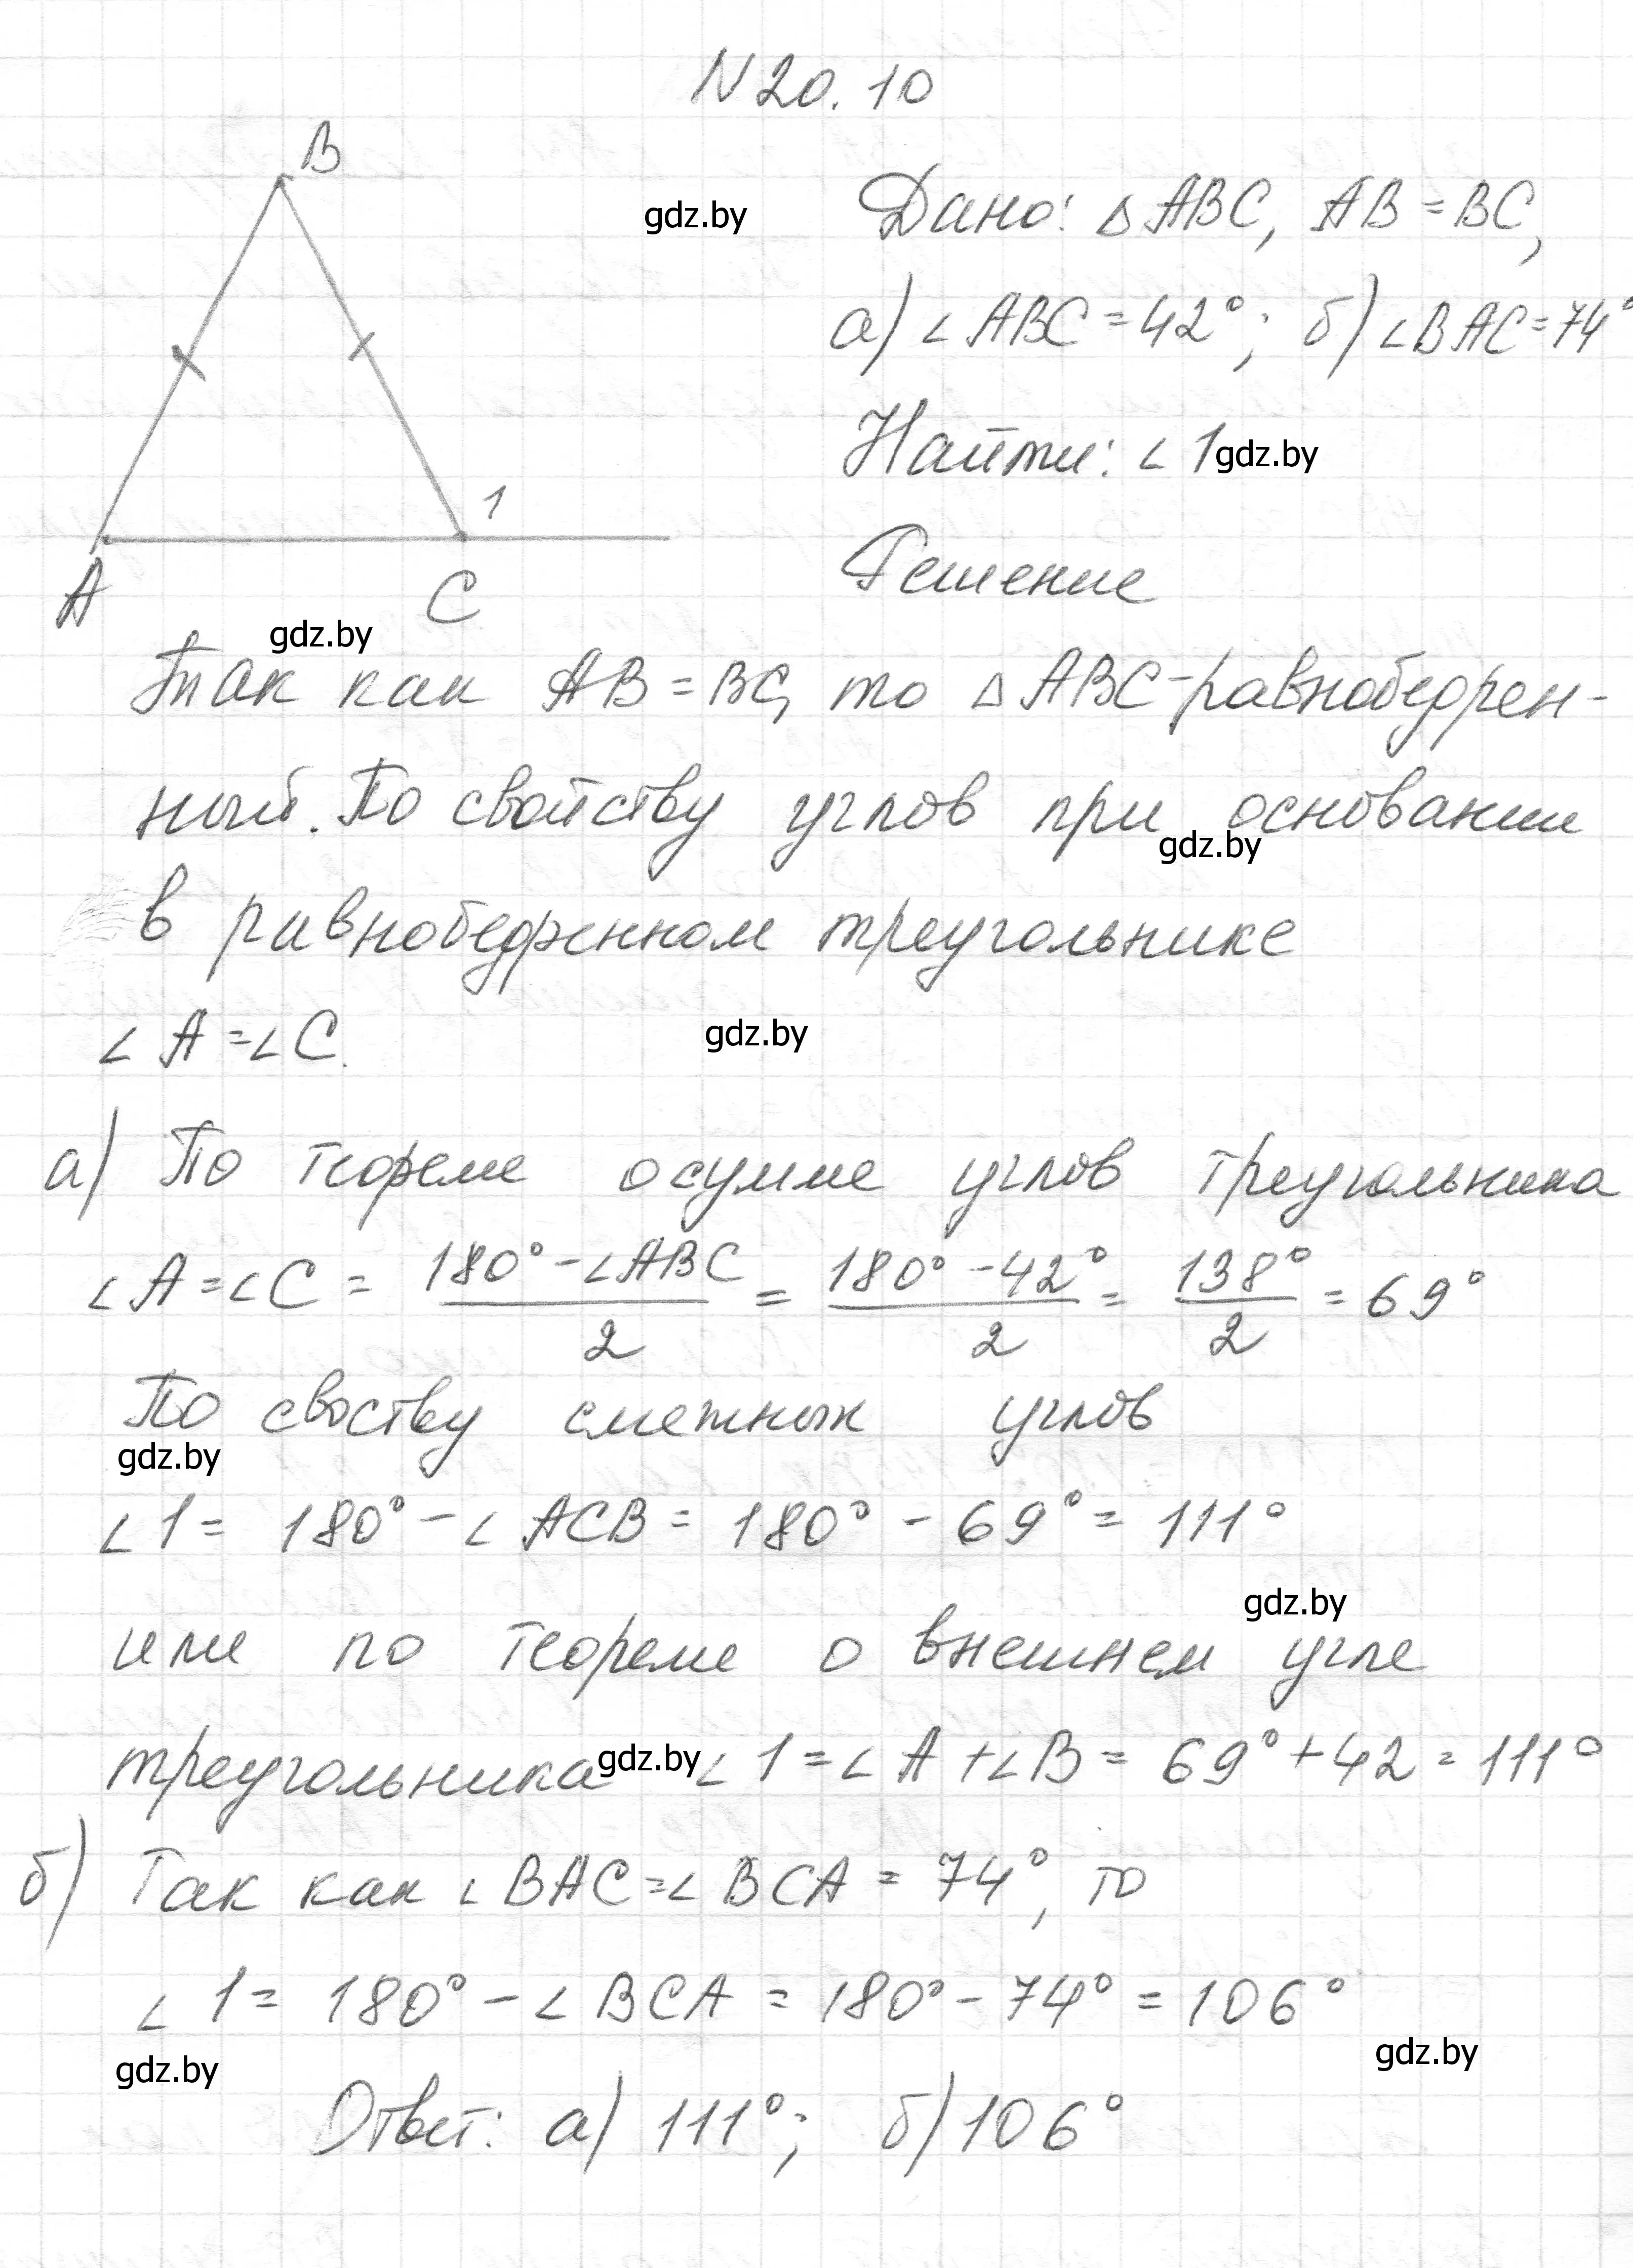 N 20.10
B
gdz.by
Дано: △ ABC, AB = BC,
а) ∠ ABC = 42°; б) ∠ BAC = 74°
Найти: ∠ 1 gdz.by
1
A C
Решение
gdz.by
Так как AB = BC, то △ ABC - равнобедрен-
ный. По свойству углов при основании
gdz.by
в равнобедренном треугольнике
∠ A = ∠ C.
gdz.by
а) По теореме о сумме углов треугольника
∠ A = ∠ C = (180° - ∠ABC)/2 = (180° - 42°)/2 = 138°/2 = 69°
По своству смежных углов
gdz.by
∠ 1 = 180° - ∠ ACB = 180° - 69° = 111°
gdz.by
или по теореме о внешнем угле
треугольника gdz.by ∠ 1 = ∠ A + ∠ B = 69° + 42 = 111°
б) Так как ∠ BAC = ∠ BCA = 74°, то
∠ 1 = 180° - ∠ BCA = 180° - 74° = 106°
gdz.by
gdz.by
Ответ: а) 111°; б) 106°